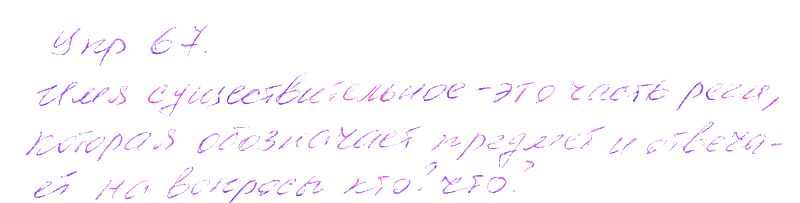 Упр 67.
Имя существительное - это часть речи,
которая обозначает предмет и отвеча-
ет на вопросы кто? что?